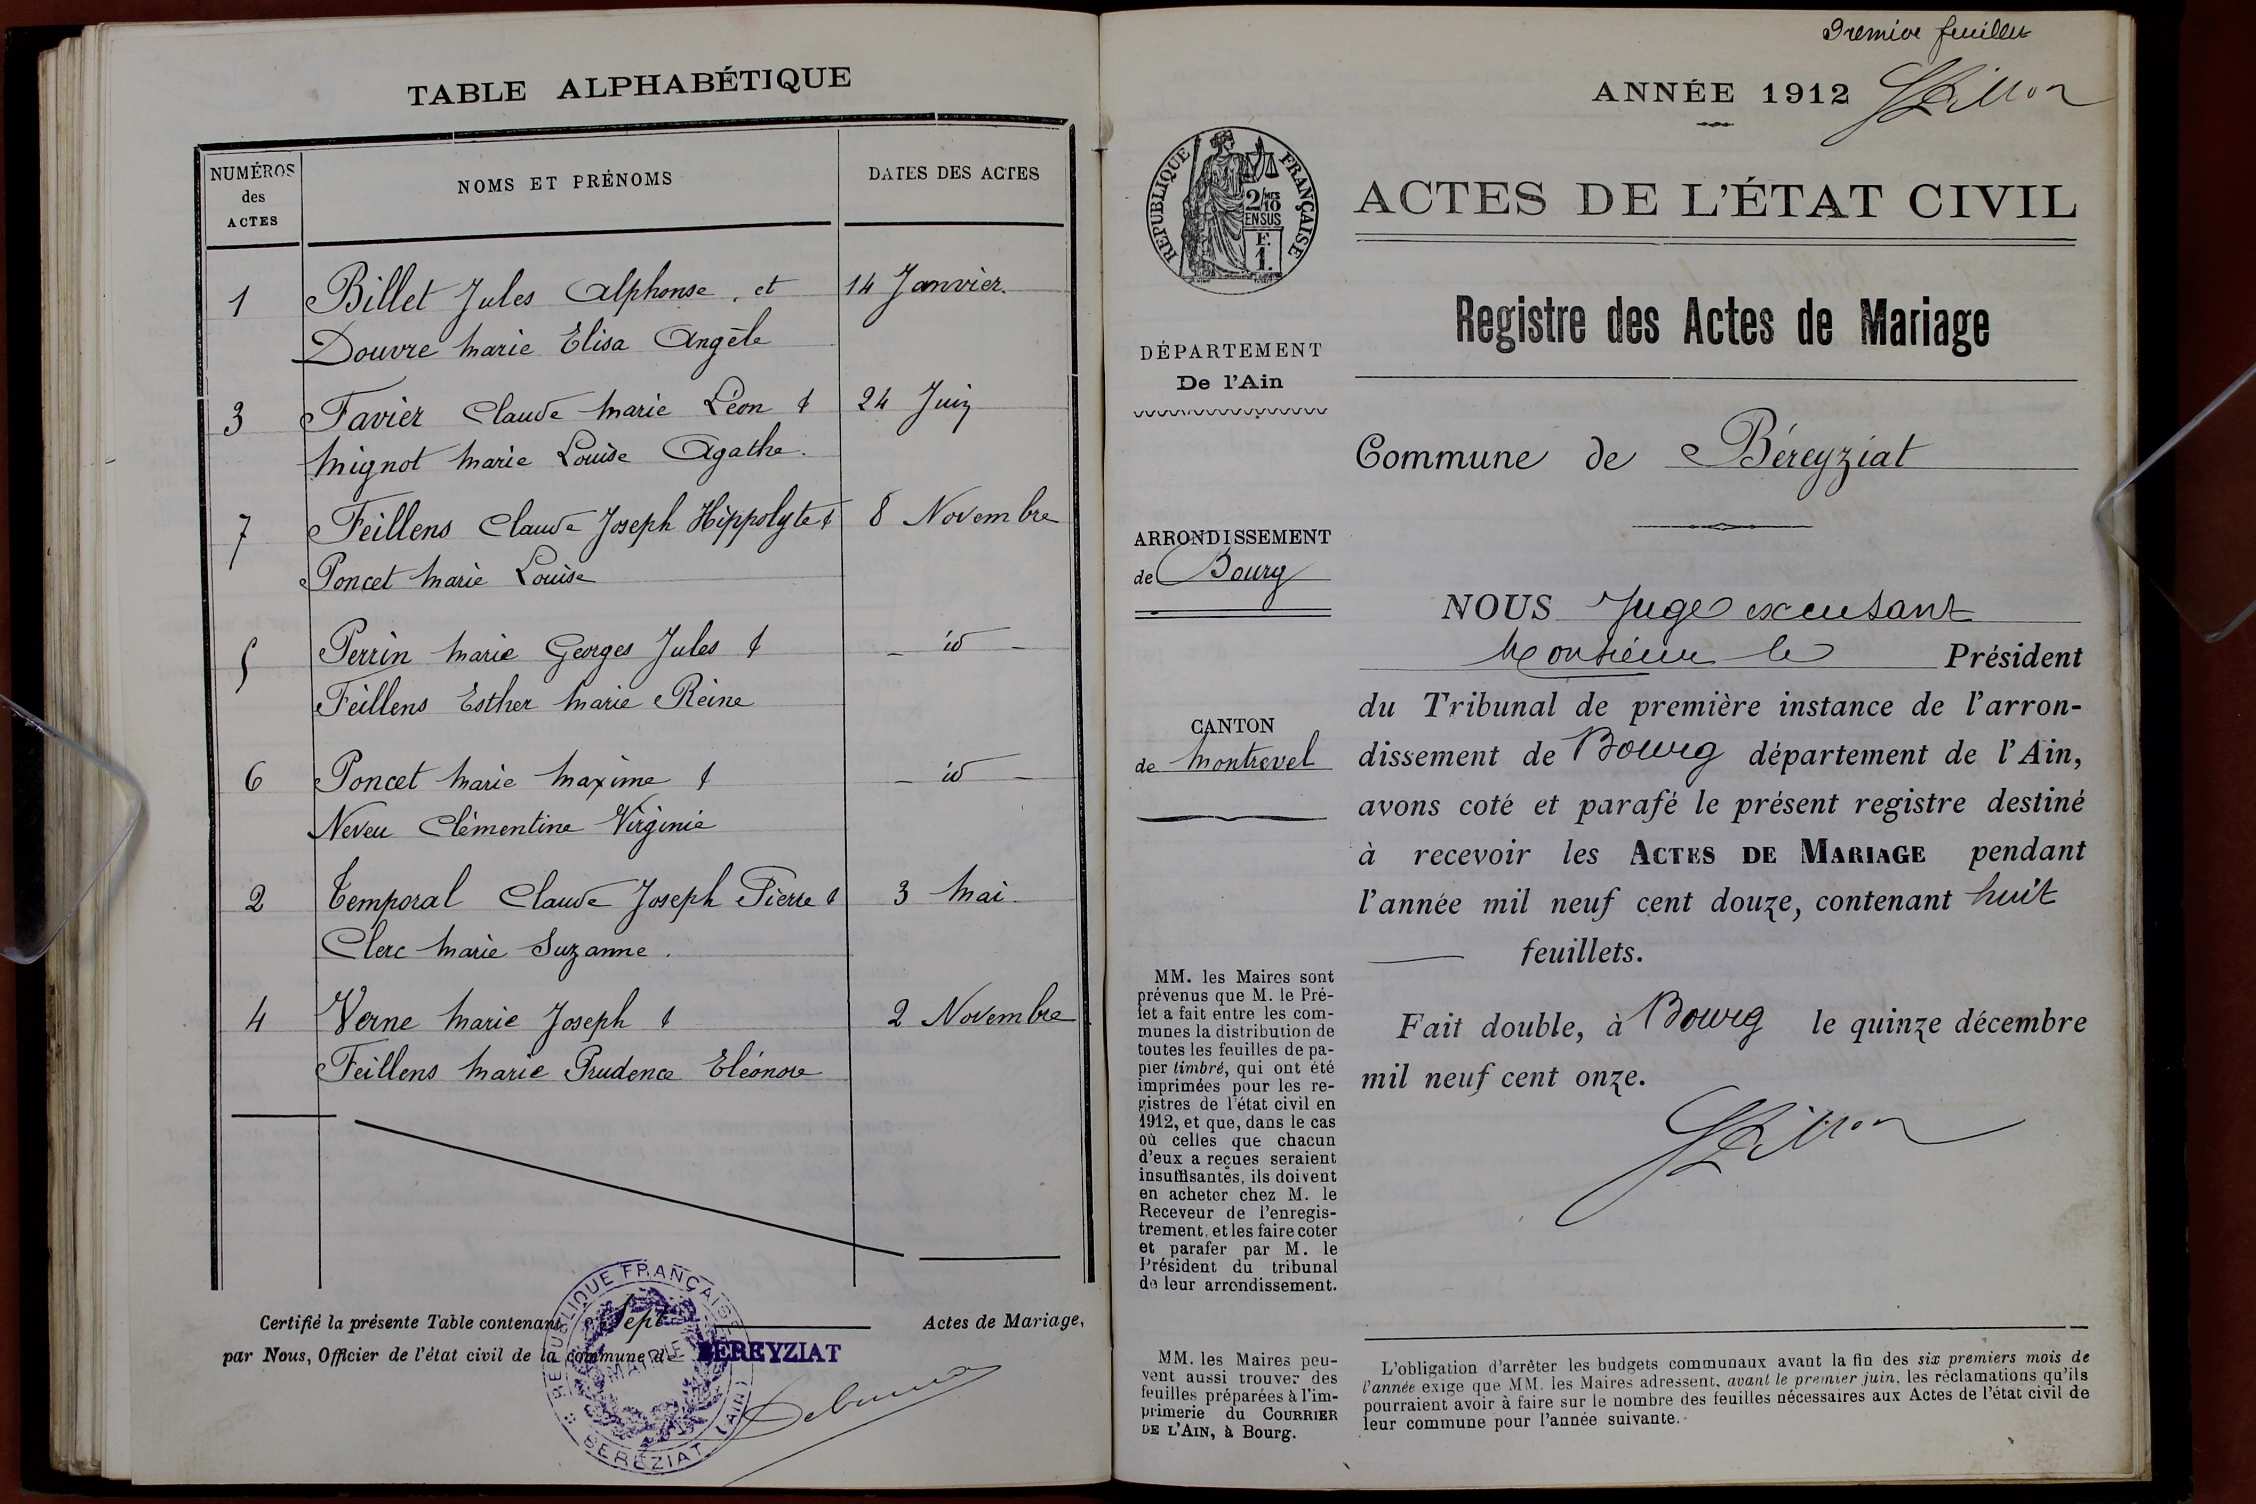 TABLE ALPHABÉTIQUE
NUMÉROS
des
ACTES
NOMS ET PRÉNOMS
DATES DES ACTES
1 Billet Jules Alphonse, et 14 Janvier.
Douvre Marie Elisa Angèle
3 Favier Claude Marie Léon & 24 Juin
Mignot Marie Louise Agathe.
7 Feillens Claude Joseph Hippolyte & 8 Novembre
Poncet Marie Louise
5 Perrin Marie Georges Jules & – id –
Feillens Esther Marie Reine
6 Poncet Marie Maxime & – id –
Neveu Clémentine Virginie
2 Temporal Claude Joseph Pierre & 3 Mai.
Clerc Marie Suzanne.
4 Verne Marie Joseph & 2 Novembre
Feillens Marie Prudence Eléonore
Certifié la présente Table contenant Sept Actes de Mariage,
par Nous, Officier de l'état civil de la commune de BEREYZIAT
RÉPUBLIQUE FRANÇAISE
MAIRIE
BEREZIAT (AIN)
Premier feuillet
ANNÉE 1912
RÉPUBLIQUE FRANÇAISE
2/10 MES
EN SUS
F.
1.
ACTES DE L'ÉTAT CIVIL
Registre des Actes de Mariage
DÉPARTEMENT
De l'Ain
Commune de Béreyziat
ARRONDISSEMENT
de Bourg
CANTON
de Montrevel
NOUS Juge excusant
Monsieur le Président
du Tribunal de première instance de l'arron-
dissement de Bourg département de l'Ain,
avons coté et parafé le présent registre destiné
à recevoir les ACTES DE MARIAGE pendant
l'année mil neuf cent douze, contenant huit
feuillets.
Fait double, à Bourg le quinze décembre
mil neuf cent onze.
MM. les Maires sont
prévenus que M. le Pré-
fet a fait entre les com-
munes la distribution de
toutes les feuilles de pa-
pier timbré, qui ont été
imprimées pour les re-
gistres de l'état civil en
1912, et que, dans le cas
où celles que chacun
d'eux a reçues seraient
insuffisantes, ils doivent
en acheter chez M. le
Receveur de l'enregis-
trement, et les faire coter
et parafer par M. le
Président du tribunal
de leur arrondissement.
MM. les Maires peu-
vent aussi trouver des
feuilles préparées à l'im-
primerie du COURRIER
DE L'AIN, à Bourg.
L'obligation d'arrêter les budgets communaux avant la fin des six premiers mois de
l'année exige que MM. les Maires adressent, avant le premier juin, les réclamations qu'ils
pourraient avoir à faire sur le nombre des feuilles nécessaires aux Actes de l'état civil de
leur commune pour l'année suivante.